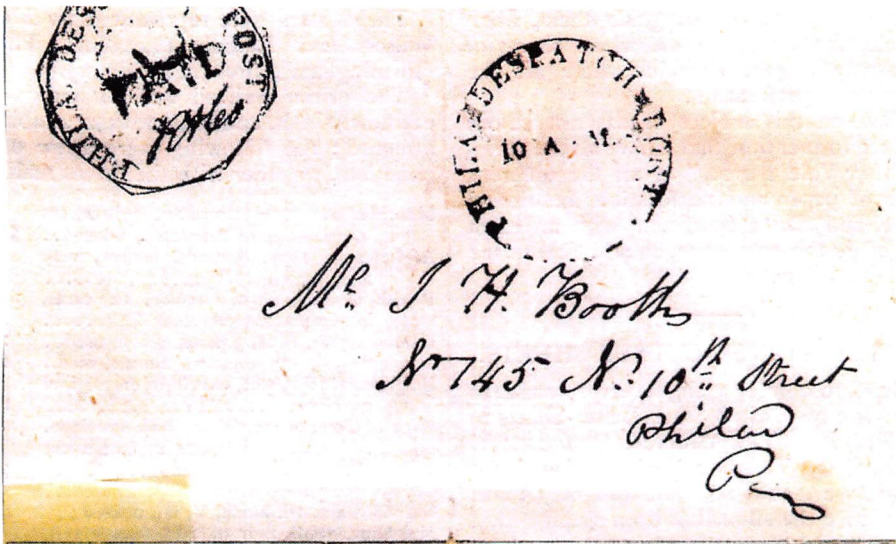 PHILA DES POST
PAID
PHILA DESPATCH POST
10 A.M.
Mr. J H. Booth
No 145 N. 10th Street
Phila
Pa